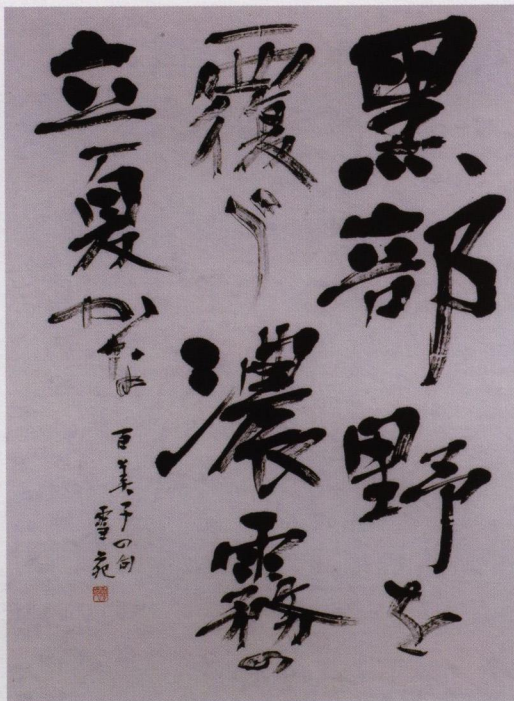 黒部野を
覆う濃霧の
立夏かな
百美子の句
雪苑